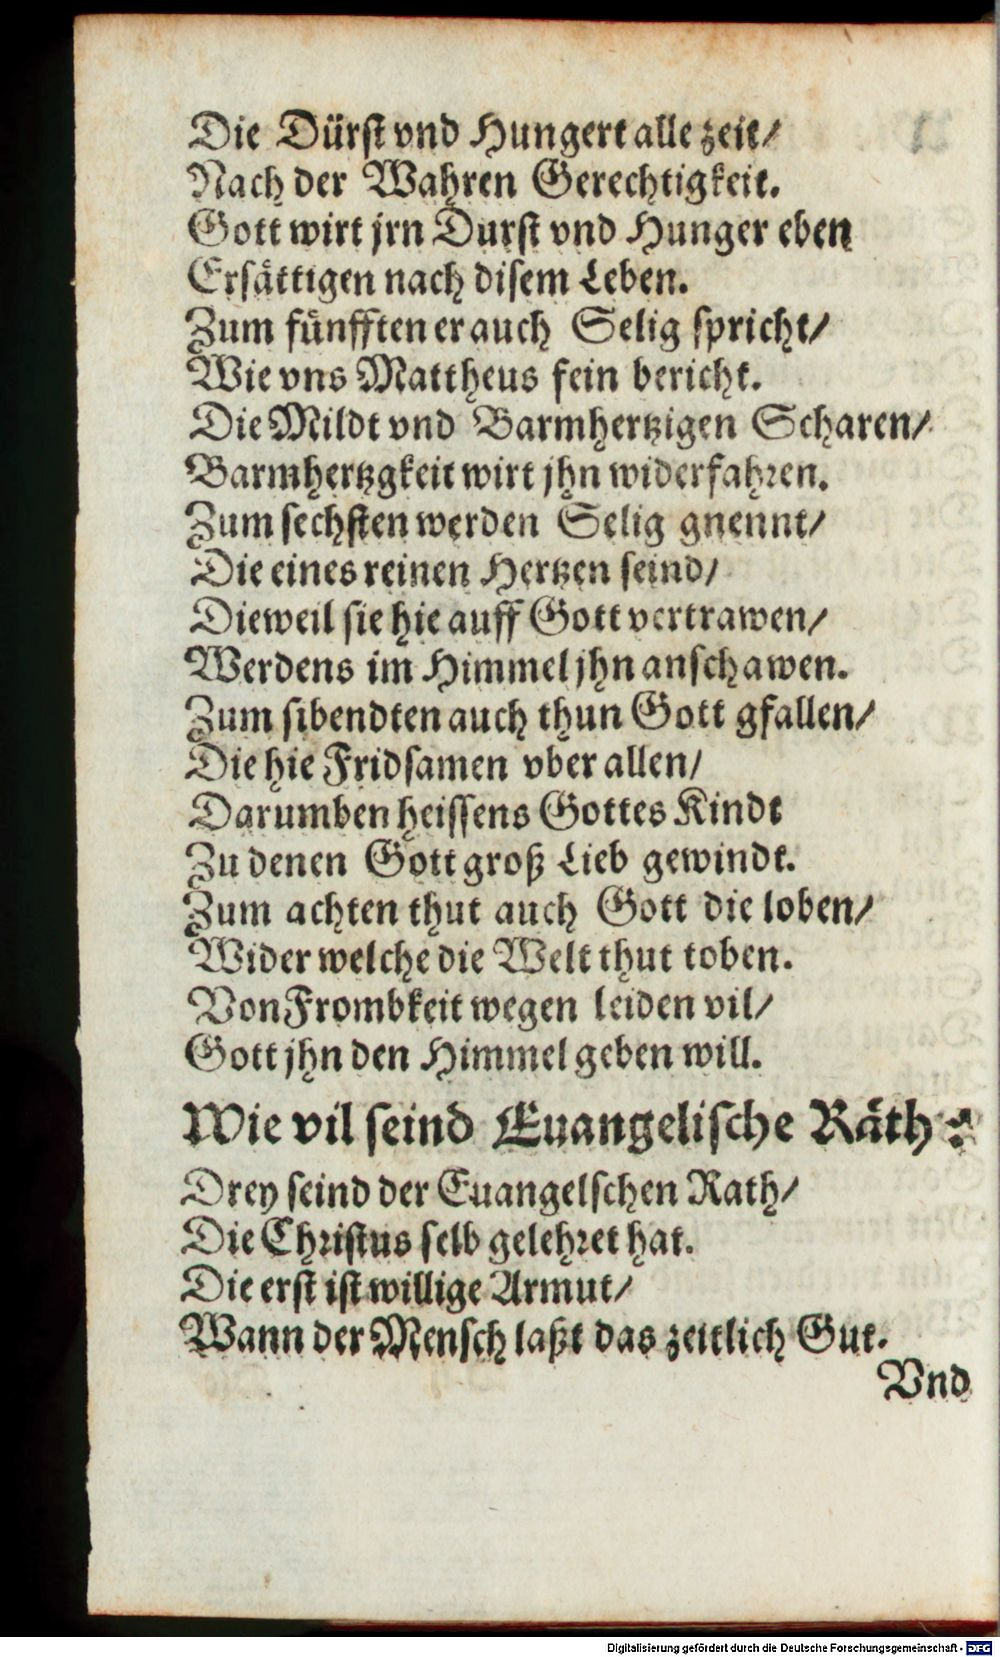 Die Dürst vnd Hungert alle zeit/
Nach der Wahren Gerechtigkeit.
Gott wirt jrn Durst vnd Hunger eben
Ersättigen nach disem Leben.
Zum fünfften er auch Selig spricht/
Wie vns Mattheus fein bericht.
Die Mildt vnd Barmhertzigen Scharen/
Barmhertzgkeit wirt jhn widerfahren.
Zum sechsten werden Selig gnennt/
Die eines reinen Hertzen seind/
Dieweil sie hie auff Gott vertrawen/
Werdens im Himmel jhn anschawen.
Zum sibendten auch thun Gott gfallen/
Die hie Fridsamen vber allen/
Darumben heissens Gottes Kindt
Zu denen Gott groß Lieb gewindt.
Zum achten thut auch Gott die loben/
Wider welche die Welt thut toben.
Von Frombkeit wegen leiden vil/
Gott jhn den Himmel geben will.
Wie vil seind Euangelische Räth?
Drey seind der Euangelschen Rath/
Die Christus selb gelehret hat.
Die erst ist willige Armut/
Wann der Mensch laßt das zeitlich Gut.
Vnd
Digitalisierung gefördert durch die Deutsche Forschungsgemeinschaft - DFG